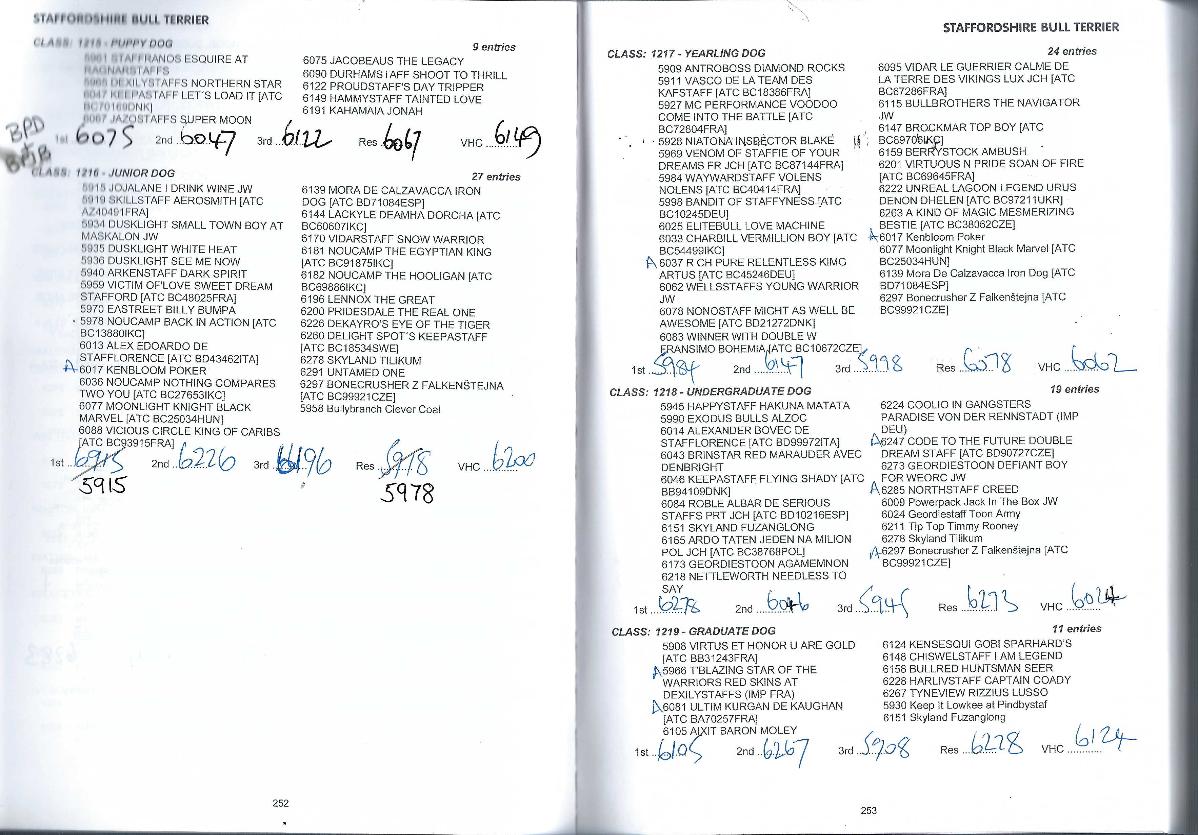 STAFFORDSHIRE BULL TERRIER
CLASS: 1215 - PUPPY DOG
9 entries
5961 STAFFRANOS ESQUIRE AT
RAGNARSTAFFS
DEXILYSTAFFS NORTHERN STAR
6047 KEEPASTAFF LET'S LOAD IT [ATC
BC70169DNK]
6067 JAZOSTAFFS SUPER MOON
6075 JACOBEAUS THE LEGACY
6090 DURHAMSTAFF SHOOT TO THRILL
6122 PROUDSTAFF'S DAY TRIPPER
6149 HAMMYSTAFF TAINTED LOVE
6191 KAHAMAIA JONAH
BPD
BPIB
1st 6075 2nd 6047 3rd 6122 Res 6067 VHC 6149
CLASS: 1216 - JUNIOR DOG
27 entries
5915 JOJALANE I DRINK WINE JW
5919 SKILLSTAFF AEROSMITH [ATC
AZ40491FRA]
5934 DUSKLIGHT SMALL TOWN BOY AT
MASKALON JW
5935 DUSKLIGHT WHITE HEAT
5936 DUSKLIGHT SEE ME NOW
5940 ARKENSTAFF DARK SPIRIT
5959 VICTIM OF'LOVE SWEET DREAM
STAFFORD [ATC BC48025FRA]
5970 EASTREET BILLY BUMPA
5978 NOUCAMP BACK IN ACTION [ATC
BC13880IKC]
6013 ALEX EDOARDO DE
STAFFLORENCE [ATC BD43462ITA]
A 6017 KENBLOOM POKER
6036 NOUCAMP NOTHING COMPARES
TWO YOU [ATC BC27653IKC]
6077 MOONLIGHT KNIGHT BLACK
MARVEL [ATC BC25034HUN]
6088 VICIOUS CIRCLE KING OF CARIBS
[ATC BC93915FRA]
6139 MORA DE CALZAVACCA IRON
DOG [ATC BD71084ESP]
6144 LACKYLE DEAMHA DORCHA [ATC
BC60607IKC]
6170 VIDARSTAFF SNOW WARRIOR
6181 NOUCAMP THE EGYPTIAN KING
[ATC BC91875IKC]
6182 NOUCAMP THE HOOLIGAN [ATC
BC69886IKC]
6196 LENNOX THE GREAT
6200 PRIDESDALE THE REAL ONE
6226 DEKAYRO'S EYE OF THE TIGER
6260 DELIGHT SPOT'S KEEPASTAFF
[ATC BC18534SWE]
6278 SKYLAND TILIKUM
6291 UNTAMED ONE
6297 BONECRUSHER Z FALKENŠTEJNA
[ATC BC99921CZE]
5958 Bullybranch Clever Coal
1st 5915 2nd 6226 3rd 6196 Res 5978 VHC 6200
5915 5978
252
STAFFORDSHIRE BULL TERRIER
CLASS: 1217 - YEARLING DOG
24 entries
5909 ANTROBOSS DIAMOND ROCKS
5911 VASCO DE LA TEAM DES
KAFSTAFF [ATC BC18386FRA]
5927 MC PERFORMANCE VOODOO
COME INTO THE BATTLE [ATC
BC72804FRA]
5928 NIATONA INSPECTOR BLAKE
5969 VENOM OF STAFFIE OF YOUR
DREAMS FR JCH [ATC BC87144FRA]
5984 WAYWARDSTAFF VOLENS
NOLENS [ATC BC40414FRA]
5998 BANDIT OF STAFFYNESS [ATC
BC10245DEU]
6025 ELITEBULL LOVE MACHINE
6033 CHARBILL VERMILLION BOY [ATC
BC54499IKC]
A 6037 RICH PURE RELENTLESS KING
ARTUS [ATC BC45246DEU]
6062 WELLSSTAFFS YOUNG WARRIOR
JW
6078 NONOSTAFF MIGHT AS WELL BE
AWESOME [ATC BD21272DNK]
6083 WINNER WITH DOUBLE W
FRANSIMO BOHEMIA [ATC BC10672CZE]
6095 VIDAR LE GUERRIER CALME DE
LA TERRE DES VIKINGS LUX JCH [ATC
BC67286FRA]
6115 BULLBROTHERS THE NAVIGATOR
JW
6147 BROCKMAR TOP BOY [ATC
BC69706IKC]
6159 BERRYSTOCK AMBUSH
6201 VIRTUOUS N PRIDE SOAN OF FIRE
[ATC BC69645FRA]
6222 UNREAL LAGOON LEGEND URUS
DENON DHELEN [ATC BC97211UKR]
6263 A KIND OF MAGIC MESMERIZING
BESTIE [ATC BC38062CZE]
A 6017 Kenbloom Poker
6077 Moonlight Knight Black Marvel [ATC
BC25034HUN]
6139 Mora De Calzavacca Iron Dog [ATC
BD71084ESP]
6297 Bonecrusher Z Falkenštejna [ATC
BC99921CZE]
1st 5984 2nd 6147 3rd 5998 Res 6078 VHC 6062
CLASS: 1218 - UNDERGRADUATE DOG
19 entries
5945 HAPPYSTAFF HAKUNA MATATA
5990 EXODUS BULLS ALZOC
6014 ALEXANDER BOVEC DE
STAFFLORENCE [ATC BD99972ITA]
6043 BRINSTAR RED MARAUDER AVEC
DENBRIGHT
6046 KEEPASTAFF FLYING SHADY [ATC
BB94109DNK]
6084 ROBLE ALBAR DE SERIOUS
STAFFS PRT JCH [ATC BD10216ESP]
6151 SKYLAND FUZANGLONG
6165 ARDO TATEN JEDEN NA MILION
POL JCH [ATC BC38768POL]
6173 GEORDIESTOON AGAMEMNON
6218 NETTLEWORTH NEEDLESS TO
SAY
6224 COOLIO IN GANGSTERS
PARADISE VON DER RENNSTADT (IMP
DEU)
A 6247 CODE TO THE FUTURE DOUBLE
DREAM STAFF [ATC BD90727CZE]
6273 GEORDIESTOON DEFIANT BOY
FOR WEORC JW
A 6285 NORTHSTAFF CREED
6009 Powerpack Jack In The Box JW
6024 Geordiestaff Toon Army
6211 Tip Top Timmy Rooney
6278 Skyland Tilikum
A 6297 Bonecrusher Z Falkenštejna [ATC
BC99921CZE]
1st 6278 2nd 6046 3rd 5945 Res 6273 VHC 6024
CLASS: 1219 - GRADUATE DOG
11 entries
5908 VIRTUS ET HONOR U ARE GOLD
[ATC BB31243FRA]
A 5966 T'BLAZING STAR OF THE
WARRIORS RED SKINS AT
DEXILYSTAFFS (IMP FRA)
A 6081 ULTIM KURGAN DE KAUGHAN
[ATC BA70257FRA]
6105 AJXIT BARON MOLEY
6124 KENSESQUI GOBI SPARHARD'S
6148 CHISWELSTAFF I AM LEGEND
6158 BULLRED HUNTSMAN SEER
6228 HARLIVSTAFF CAPTAIN COADY
6267 TYNEVIEW RIZZIUS LUSSO
5930 Keep it Lowkee at Pindbystaf
6151 Skyland Fuzanglong
1st 6105 2nd 6267 3rd 5908 Res 6228 VHC 6124
253